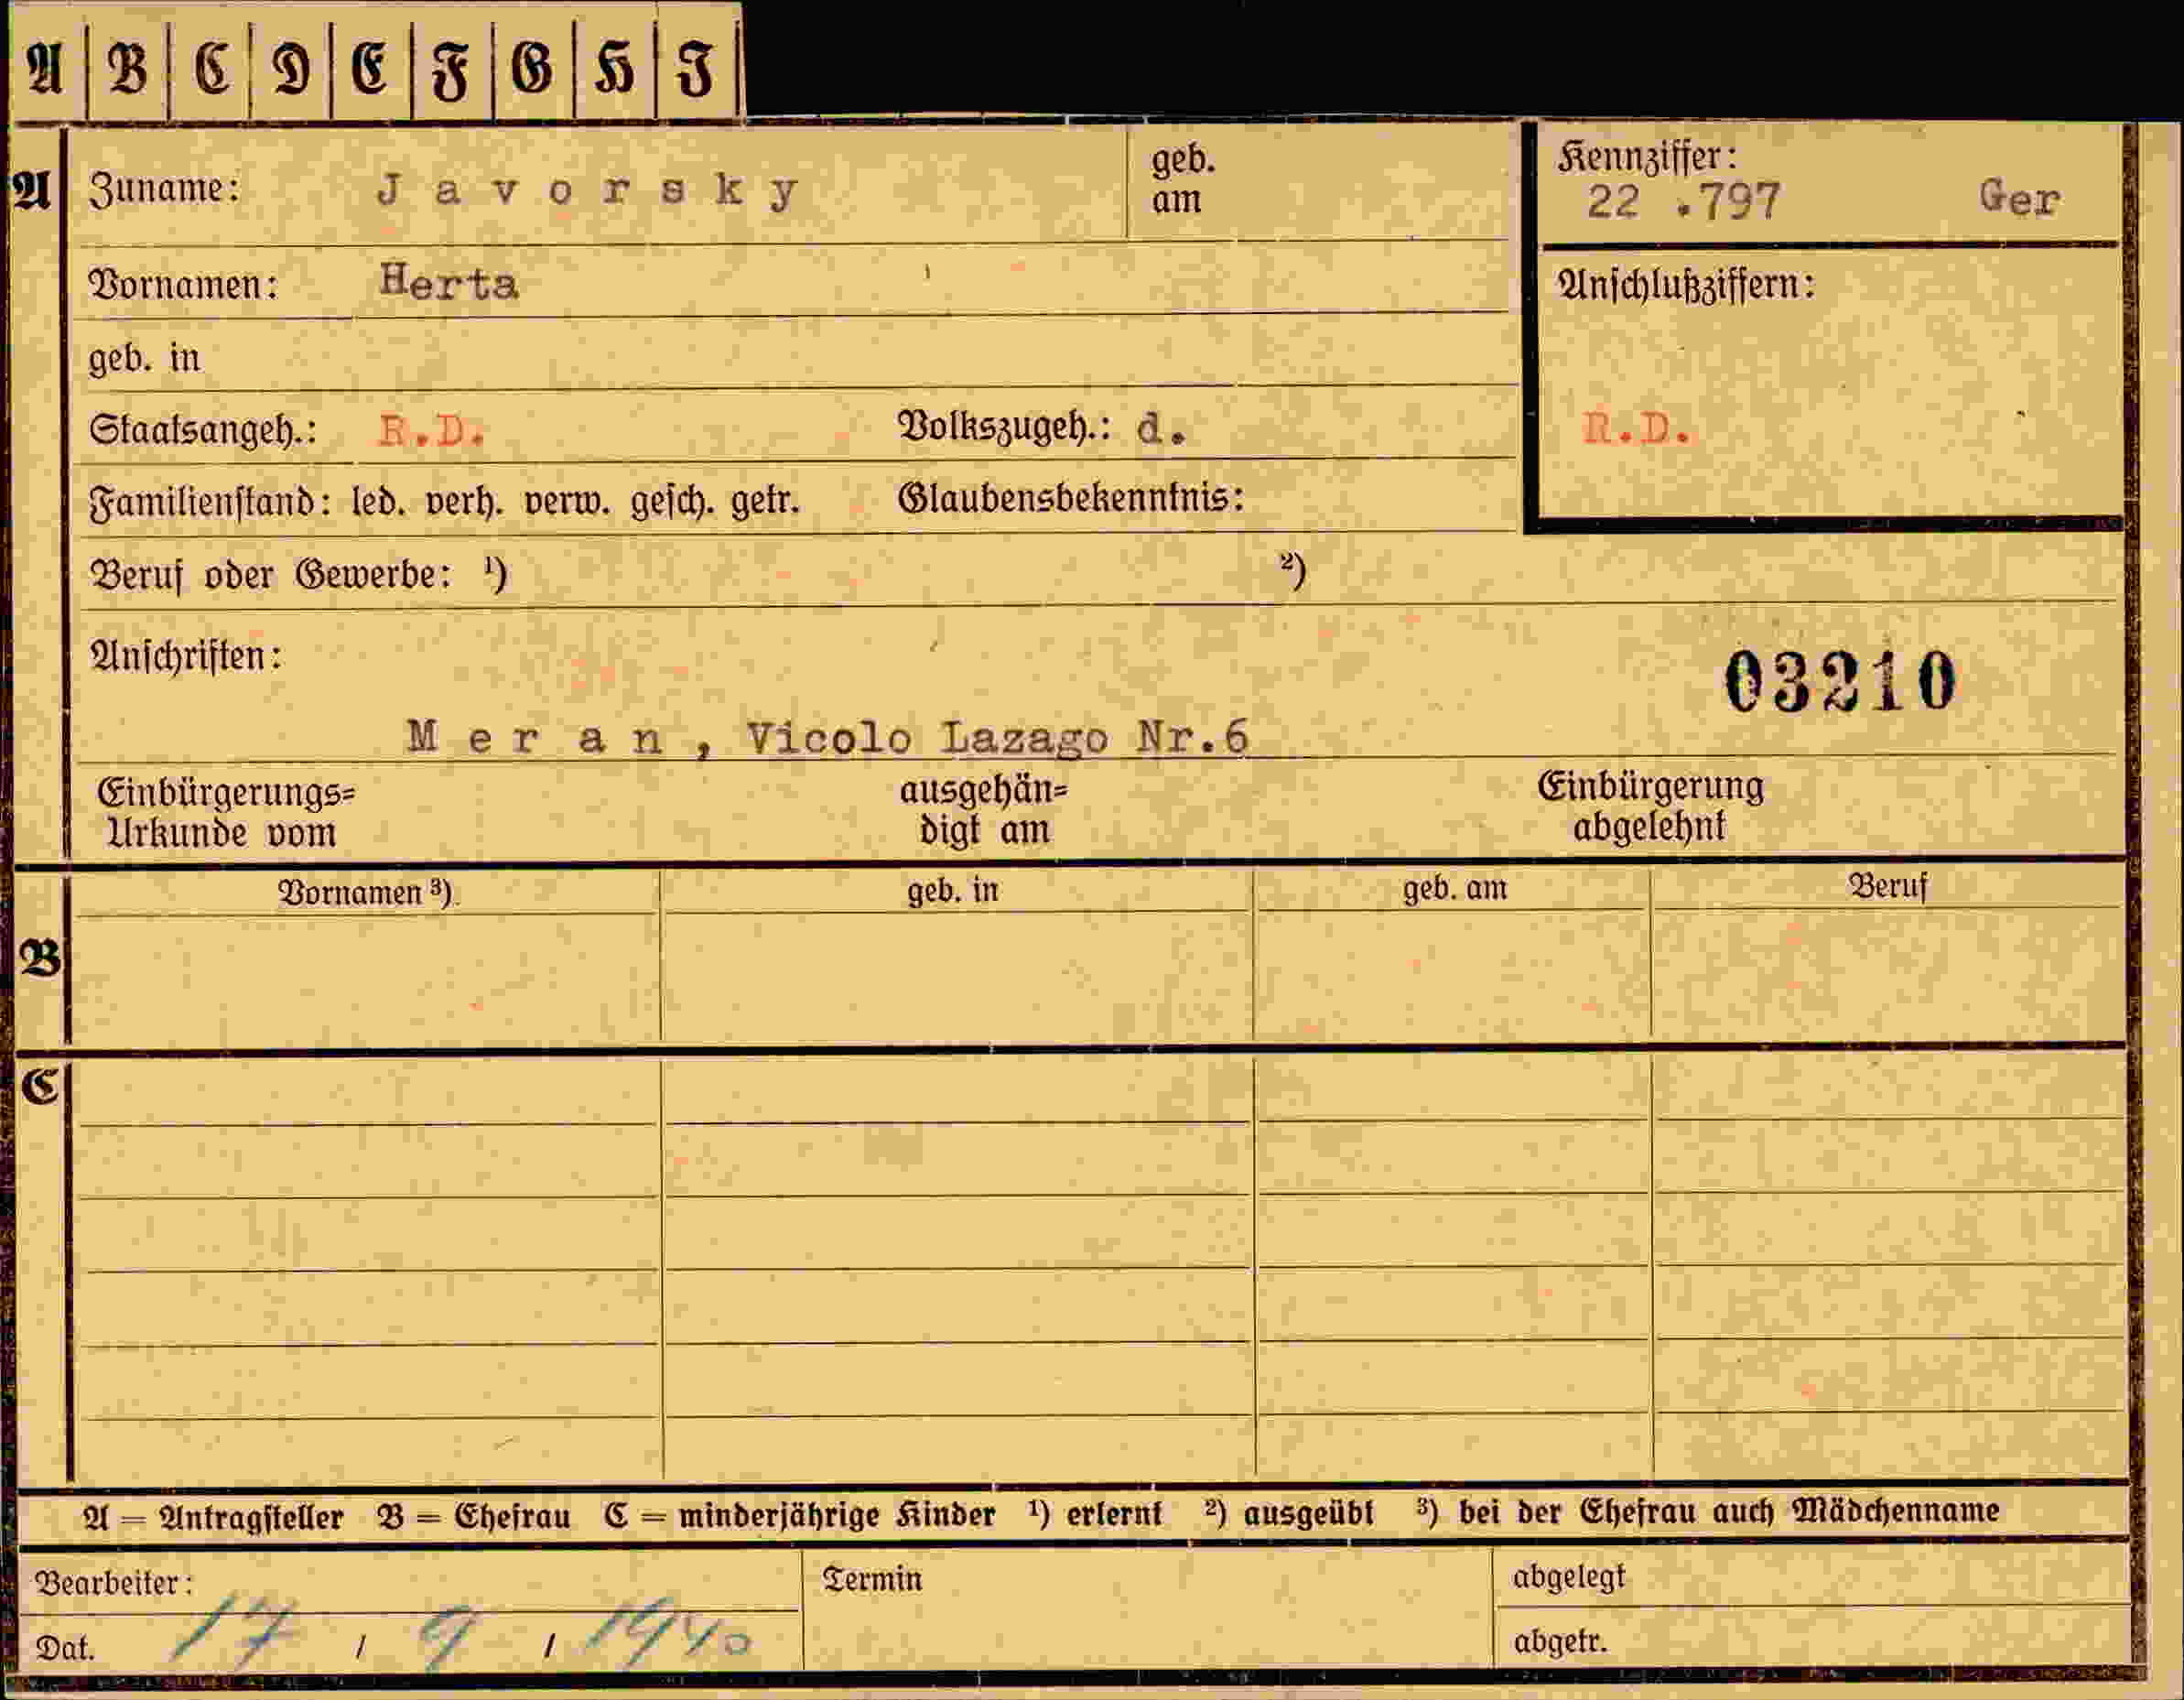 A B C D E F G H I
A Zuname: Javorsky geb. am
Kennziffer: 22 .797 Ger
Vornamen: Herta
Anschlußziffern:
geb. in
Staatsangeh.: R.D. Volkszugeh.: d.
R.D.
Familienstand: led. verh. verw. gesch. getr. Glaubensbekenntnis:
Beruf oder Gewerbe: ¹) ²)
Anschriften:
03210
Meran, Vicolo Lazago Nr.6
Einbürgerungs= ausgehän= Einbürgerung
Urkunde vom digt am abgelehnt
Vornamen ³) geb. in geb. am Beruf
B
C
A = Antragsteller B = Ehefrau C = minderjährige Kinder ¹) erlernt ²) ausgeübt ³) bei der Ehefrau auch Mädchenname
Bearbeiter: Termin abgelegt
Dat. 17 / 9 / 1940 abgetr.